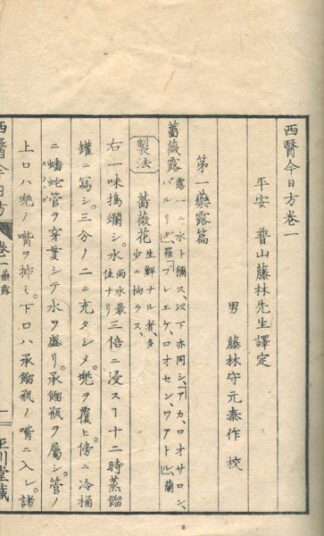 西醫今日方卷一
平安 普山藤林先生譯定
男 藤林守元泰作 校
第一藥露篇
薔薇露 露一ニ水ト稱ス、以下亦同シ、「アカ、ロオサロン、
バルリダ」羅「プレエケ、ロオセン、ワアトル」蘭
製法 薔薇花 生鮮ナル者、多少ニ拘ラス、
右一味搗爛シ。水 雨水最佳ナリ 三倍ニ浸スヿ十二時蒸餾
罐ニ寫シ。三分ノ二ニ充タシメ。兠ヲ覆ヒ。傍ニ冷桶
ニ蟠蛇管ヲ穿貫シテ水ヲ盛リ。承餾瓶ヲ屬シ。管ノ
上口ハ兠ノ嘴ヲ挿ミ。下口ハ承餾瓶ノ嘴ニ入レ。諸
西醫今日方 卷一 藥露